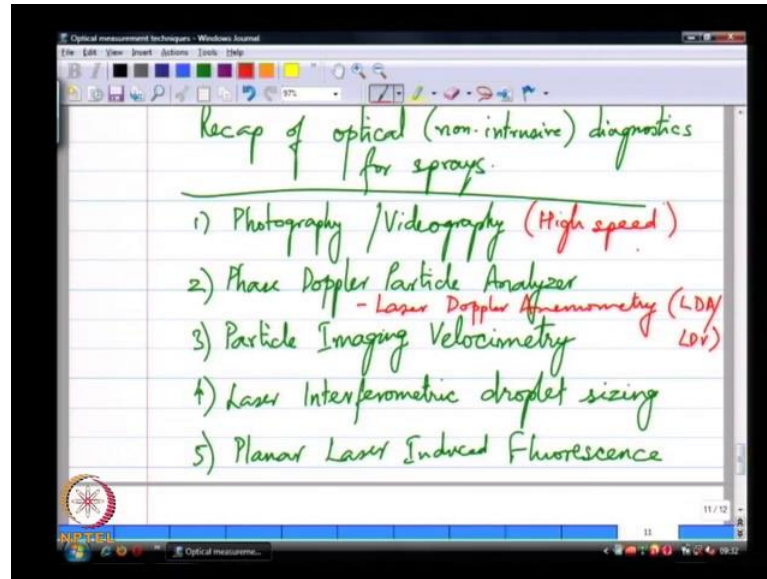 Optical measurement techniques - Windows Journal
File Edit View Insert Actions Tools Help
B I
97%
Recap of optical (non-intrusive) diagnostics
for sprays.
1) Photography / Videography (High speed)
2) Phase Doppler Particle Analyzer
- Laser Doppler Anemometry (LDA/
LDV)
3) Particle Imaging Velocimetry
4) Laser Interferometric droplet sizing
5) Planar Laser Induced Fluorescence
11 / 12
11
NPTEL
Optical measureme...
09:32